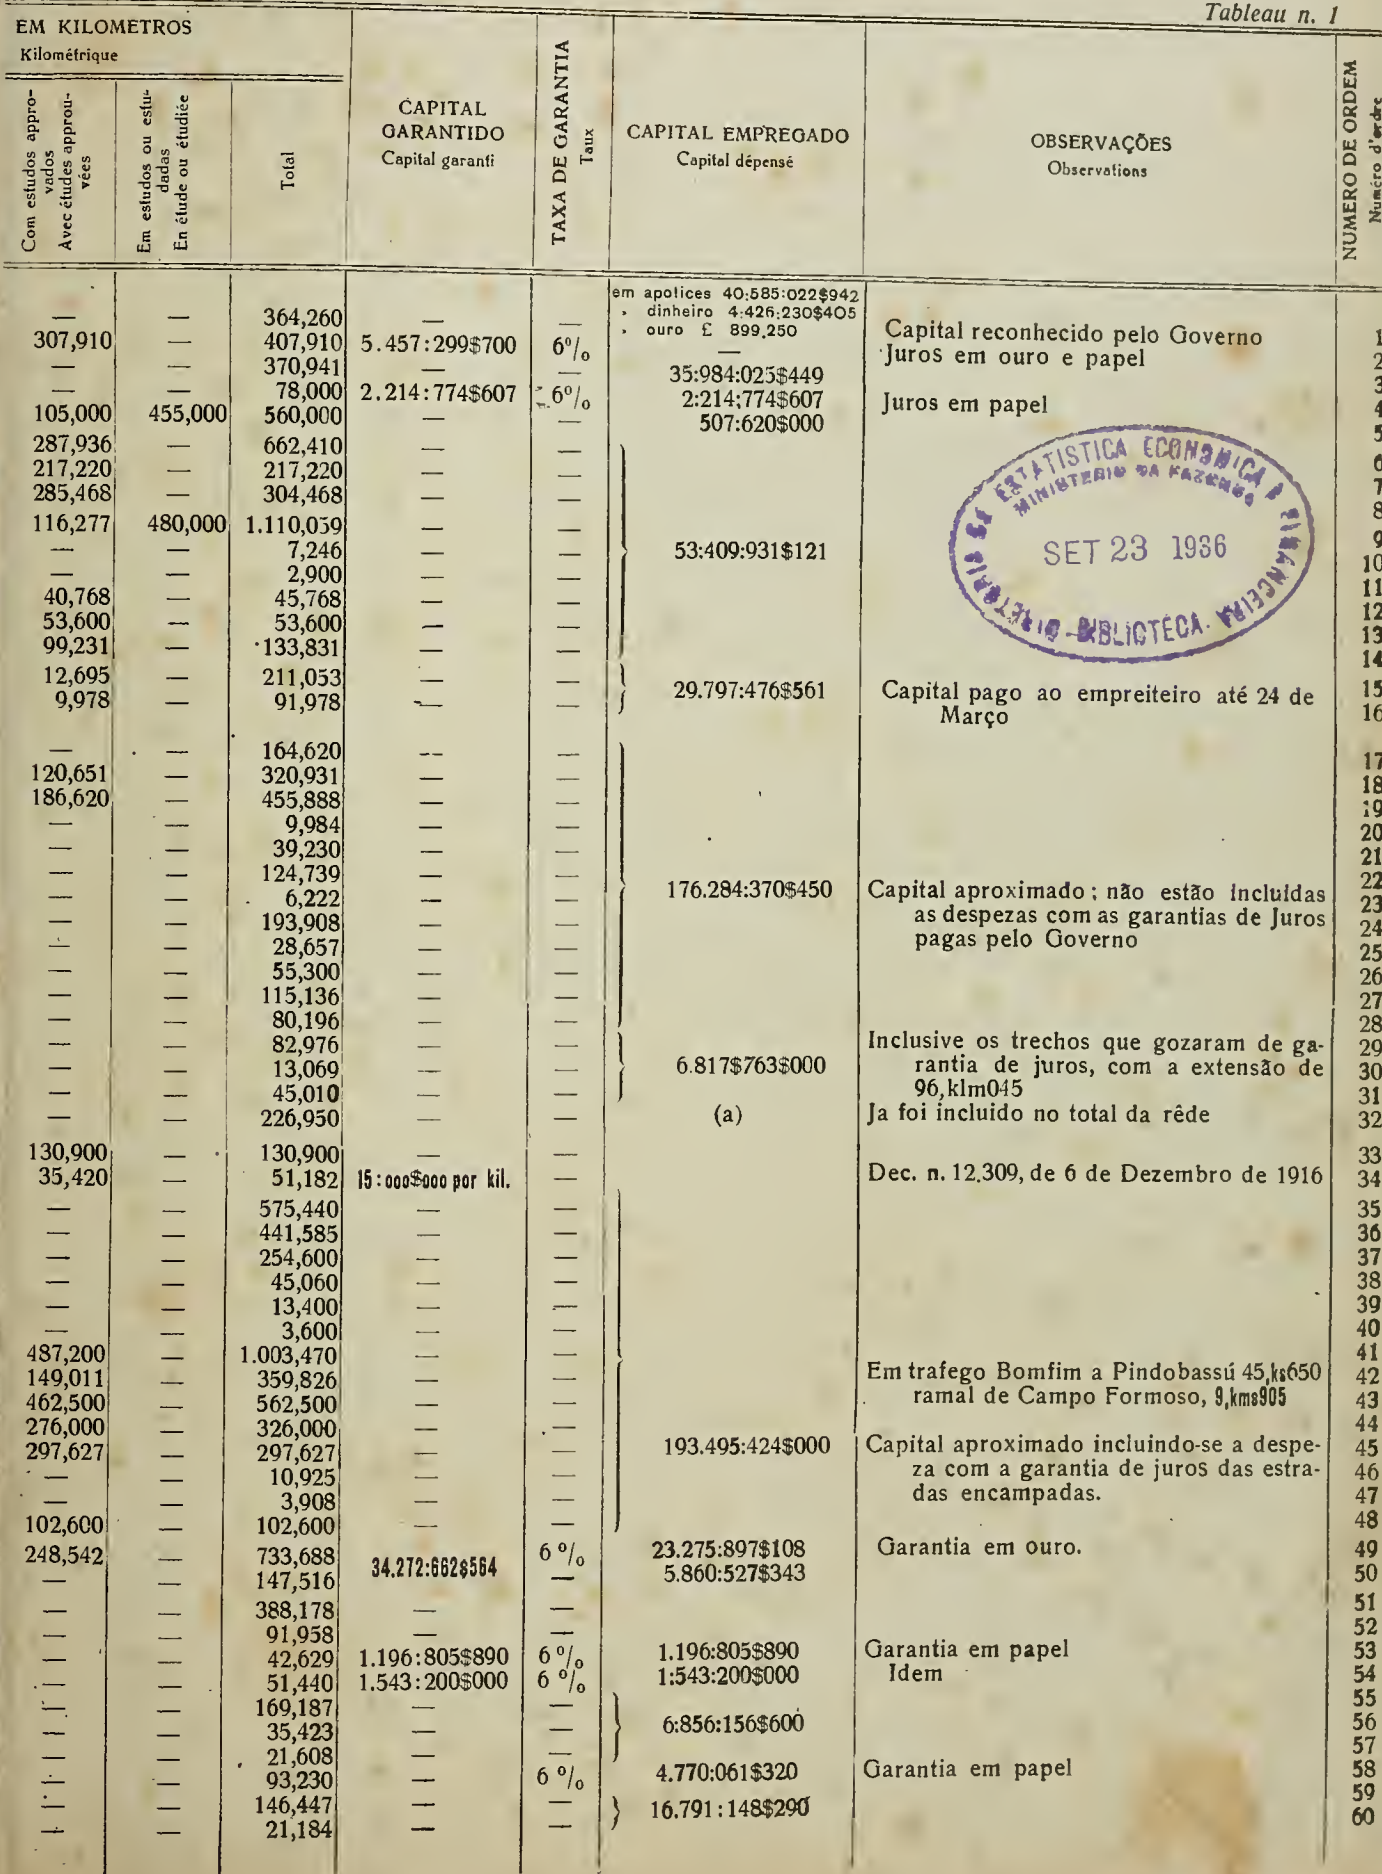 Tableau n. 1
EM KILOMETROS
Kilométrique
Com estudos appro-
vados
Avec études approu-
vées
Em estudos ou estu-
dadas
En étude ou étudiée
Total
CAPITAL
GARANTIDO
Capital garanti
TAXA DE GARANTIA
Taux
CAPITAL EMPREGADO
Capital dépensé
OBSERVAÇÕES
Observations
NUMERO DE ORDEM
Numéro d'ordre
em apolices 40:585:022$942
» dinheiro 4:426:230$405
— — 364,260 — — » ouro £ 899,250 Capital reconhecido pelo Governo 1
307,910 — 407,910 5.457:299$700 6% — Juros em ouro e papel 2
— — 370,941 — — 35:984:025$449 3
— — 78,000 2.214:774$607 6% 2:214:774$607 Juros em papel 4
105,000 455,000 560,000 — — 507:620$000 5
287,936 — 662,410 — — 6
217,220 — 217,220 — — 7
285,468 — 304,468 — — 8
116,277 480,000 1.110,059 — — 9
— — 7,246 — — 53:409:931$121 10
— — 2,900 — — 11
40,768 — 45,768 — — 12
53,600 — 53,600 — — 13
99,231 — 133,831 — — 14
DIRETORIA DE ESTATISTICA ECONOMICA E FINANCEIRA
MINISTERIO DA FAZENDA
SET 23 1936
BIBLIOTECA
12,695 — 211,053 — — 29.797:476$561 Capital pago ao empreiteiro até 24 de 15
9,978 — 91,978 — — Março 16
— — 164,620 — — 17
120,651 — 320,931 — — 18
186,620 — 455,888 — — 19
— — 9,984 — — 20
— — 39,230 — — 21
— — 124,739 — — 22
— — 6,222 — — 176.284:370$450 Capital aproximado; não estão incluidas 23
— — 193,908 — — as despezas com as garantias de Juros 24
— — 28,657 — — pagas pelo Governo 25
— — 55,300 — — 26
— — 115,136 — — 27
— — 80,196 — — 28
— — 82,976 — — Inclusive os trechos que gozaram de ga- 29
— — 13,069 — — 6.817$763$000 rantia de juros, com a extensão de 30
— — 45,010 — — 96,klm045 31
— — 226,950 — — (a) Ja foi incluido no total da rêde 32
130,900 — 130,900 — — 33
35,420 — 51,182 15:000$000 por kil. — Dec. n. 12.309, de 6 de Dezembro de 1916 34
— — 575,440 — — 35
— — 441,585 — — 36
— — 254,600 — — 37
— — 45,060 — — 38
— — 13,400 — — 39
— — 3,600 — — 40
487,200 — 1.003,470 — — 41
149,011 — 359,826 — — Em trafego Bomfim a Pindobassú 45,ks650 42
462,500 — 562,500 — — ramal de Campo Formoso, 9,kms905 43
276,000 — 326,000 — — 44
297,627 — 297,627 — — 193.495:424$000 Capital aproximado incluindo-se a despe- 45
— — 10,925 — — za com a garantia de juros das estra- 46
— — 3,908 — — das encampadas. 47
102,600 — 102,600 — — 48
248,542 — 733,688 34.272:662$564 6% 23.275:897$108 Garantia em ouro. 49
— — 147,516 — 5.860:527$343 50
— — 388,178 — — 51
— — 91,958 — — 52
— — 42,629 1.196:805$890 6% 1.196:805$890 Garantia em papel 53
— — 51,440 1.543:200$000 6% 1:543:200$000 Idem 54
— — 169,187 — — 55
— — 35,423 — — 6:856:156$600 56
— — 21,608 — — 57
— — 93,230 — 6% 4.770:061$320 Garantia em papel 58
— — 146,447 — — 16.791:148$290 59
— — 21,184 — — 60